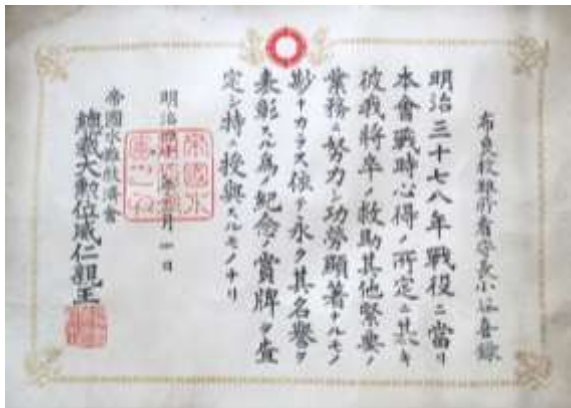 布良救難所看守長小谷喜録
明治三十七八年戰役ニ當リ
本會戰時心得ノ所定ニ基キ
彼我將卒ノ救助其他緊要ノ
業務ニ努力シ功勞顯著ナルモノ
尠ナカラス依テ永ク其名譽ヲ
表彰スル為メ紀念ノ賞牌ヲ查
定シ特ニ授與スルモノナリ
明治四十年 月 日
帝國水難救濟會
總裁大勲位威仁親王
帝國水